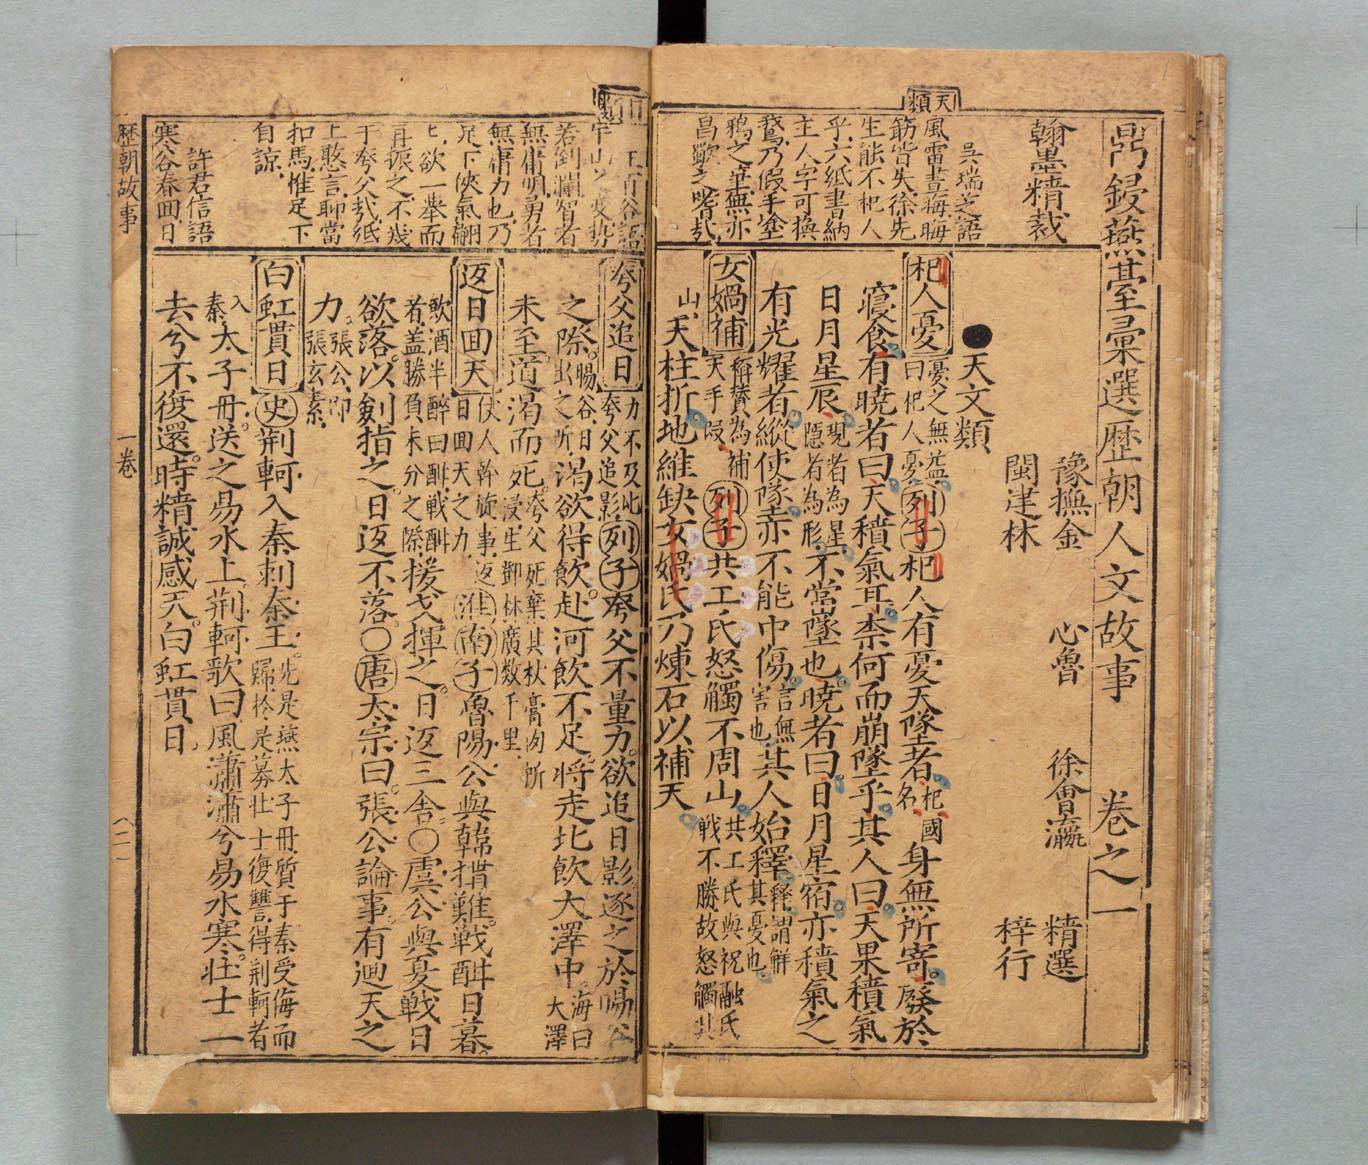 鼎鋟燕臺彙選歷朝人文故事 卷之一
豫撫金 心魯 徐會瀛 精選
閩建林 梓行
●天文類
杞人憂
憂之無益
曰杞人憂
列子杞人有憂天墜者
杞國
名
身無所寄廢於
寢食有曉者曰天積氣耳柰何而崩墜乎其人曰天果積氣
日月星辰
現者為星
隱者為形
不當墜也曉者曰日月星宿亦積氣之
有光耀者縱使墜亦不能中傷
言無
害也
其人始釋
釋謂解
其憂也
女媧補
稱贊為補
天手段
列子共工氏怒觸不周山
共工氏與祝融氏
戰不勝故怒觸其
山
天柱折地維缺女媧氏乃煉石以補天
天類
翰墨精裁
吳瑞芝語
風雷晝晦晦
筋皆失徐先
生能不杞人
乎六紙書納
主人字可換
鵝乃假手塗
鴉之筆無亦
昌歜之嗜哉
夸父追日
力不及此
夸父追影
列子夸父不量力欲追日影逐之於暘谷
之際
暘谷日
出之所
渴欲得飲赴河飲不足將走北飲大澤中
海曰
大澤
未至道渴而死
夸父死棄其杖膏肉所
浸生鄧林廣数千里
返日回天
仗人幹旋事返
日回天之力
淮南子魯陽公與韓搆難戰酣日暮
飲酒半醉曰酣戰酣
者盖勝負未分之際
援戈揮之日返三舍○虞公與夏戰日
欲落以劍指之日返不落○唐太宗曰張公論事有迴天之
力
張公即
張玄素
白虹貫日
史荊軻入秦刺秦王
先是燕太子丹質于秦受侮而
歸於是募壯士復讐得荊軻者
入
秦
太子丹送之易水上荊軻歌曰風瀟瀟兮易水寒壯士一
去兮不復還時精誠感天白虹貫日
王百谷語
若倒瀾智者
無庸明勇者
無庸力也乃
足下俠氣翩
七欲一舉而
再振之不幾
于夸父哉紙
上憨言聊當
扣馬惟足下
自諒
許君信語
寒谷春回日
歷朝故事 一卷 〈二〉